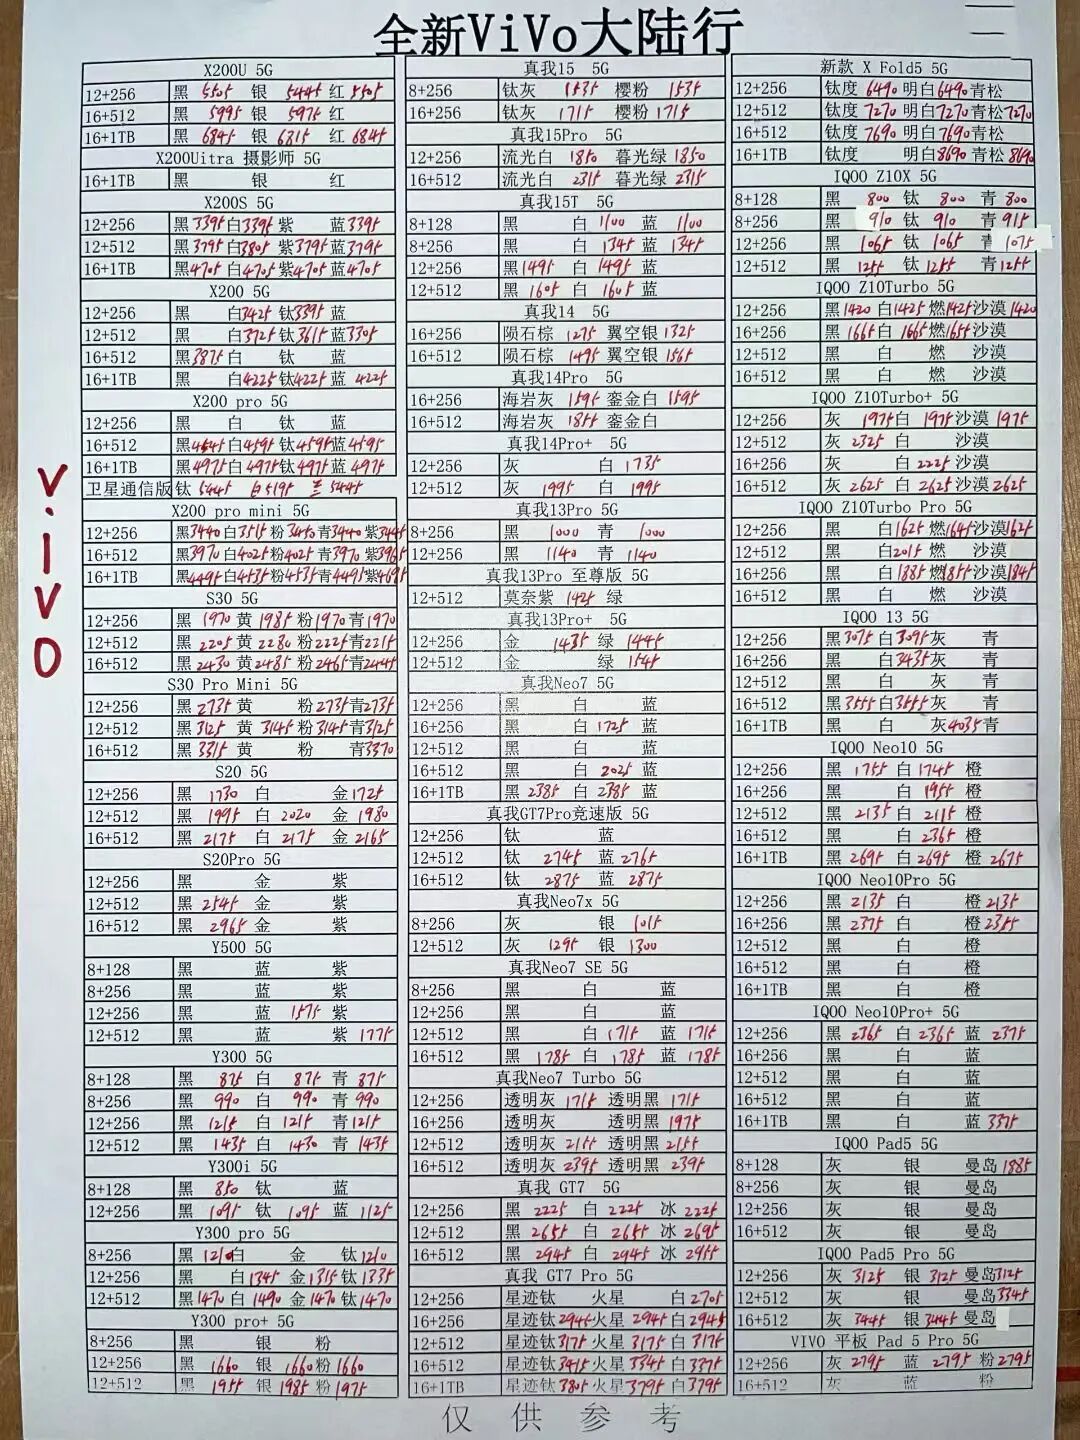 全新ViVo大陆行
V.IVO
X200U 5G
12+256 黑 5505 银 5445 红 5505
16+512 黑 5995 银 5975 红
16+1TB 黑 6845 银 6815 红 6845
X200Uitra 摄影师 5G
16+1TB 黑 银 红
X200S 5G
12+256 黑 3395 白 3395 紫 蓝 3395
12+512 黑 3795 白 3805 紫 3795 蓝 3795
16+1TB 黑 4705 白 4705 紫 4705 蓝 4705
X200 5G
12+256 黑 白 3425 钛 3395 蓝
12+512 黑 白 3725 钛 3615 蓝 3305
16+512 黑 3875 白 钛 蓝
16+1TB 黑 白 4225 钛 4225 蓝 4225
X200 pro 5G
12+256 黑 白 钛 蓝
16+512 黑 4545 白 4595 钛 4595 蓝 4595
16+1TB 黑 4975 白 4975 钛 4975 蓝 4975
卫星通信版 钛 5445 白 5195 兰 5445
X200 pro mini 5G
12+256 黑 3440 白 3515 粉 3450 青 3440 紫 3445
16+512 黑 3970 白 4025 粉 4025 青 3970 紫 3965
16+1TB 黑 4495 白 4535 粉 4535 青 4495 紫 4695
S30 5G
12+256 黑 1970 黄 1985 粉 1970 青 1970
12+512 黑 2205 黄 2230 粉 2225 青 2215
16+512 黑 2430 黄 2485 粉 2465 青 2445
S30 Pro Mini 5G
12+256 黑 2735 黄 粉 2735 青 2735
12+512 黑 3125 黄 3145 粉 3145 青 3125
16+512 黑 3315 黄 粉 青 3370
S20 5G
12+256 黑 1730 白 金 1725
12+512 黑 1995 白 2020 金 1980
16+512 黑 2175 白 2175 金 2165
S20Pro 5G
12+256 黑 金 紫
12+512 黑 2545 金 紫
16+512 黑 2965 金 紫
Y500 5G
8+128 黑 蓝 紫
8+256 黑 蓝 紫
12+256 黑 蓝 1575 紫
12+512 黑 蓝 紫 1775
Y300 5G
8+128 黑 875 白 875 青 875
8+256 黑 990 白 990 青 990
12+256 黑 1215 白 1215 青 1215
12+512 黑 1435 白 1430 青 1435
Y300i 5G
8+128 黑 850 钛 蓝
12+256 黑 1095 钛 1095 蓝 1125
Y300 pro 5G
8+256 黑 1210 白 金 钛 1210
12+256 黑 白 1345 金 1315 钛 1335
12+512 黑 1470 白 1490 金 1470 钛 1470
Y300 pro+ 5G
8+256 黑 银 粉
12+256 黑 1660 银 1660 粉 1660
12+512 黑 1955 银 1985 粉 1975
真我15 5G
8+256 钛灰 1535 樱粉 1535
16+256 钛灰 1715 樱粉 1715
真我15Pro 5G
12+256 流光白 1850 暮光绿 1850
16+512 流光白 2315 暮光绿 2315
真我15T 5G
8+128 黑 白 1100 蓝 1100
8+256 黑 白 1345 蓝 1345
12+256 黑 1495 白 1495 蓝
12+512 黑 1605 白 1605 蓝
真我14 5G
16+256 陨石棕 1275 翼空银 1325
16+512 陨石棕 1495 翼空银 1565
真我14Pro 5G
16+256 海岩灰 1595 銮金白 1595
16+512 海岩灰 1855 銮金白
真我14Pro+ 5G
12+256 灰 白 1735
12+512 灰 1995 白 1995
真我13Pro 5G
8+256 黑 1000 青 1000
12+256 黑 1140 青 1140
真我13Pro 至尊版 5G
12+512 莫奈紫 1425 绿
真我13Pro+ 5G
12+256 金 1435 绿 1445
12+512 金 绿 1545
真我Neo7 5G
12+256 黑 白 蓝
16+256 黑 白 1725 蓝
12+512 黑 白 蓝
16+512 黑 白 2025 蓝
16+1TB 黑 2385 白 2385 蓝
真我GT7Pro竞速版 5G
12+256 钛 蓝
12+512 钛 2745 蓝 2765
16+512 钛 2875 蓝 2875
真我Neo7x 5G
8+256 灰 银 1015
12+512 灰 1295 银 1300
真我Neo7 SE 5G
8+256 黑 白 蓝
12+256 黑 白 蓝
12+512 黑 白 1715 蓝 1715
16+512 黑 1785 白 1785 蓝 1785
真我Neo7 Turbo 5G
12+256 透明灰 1715 透明黑 1715
16+256 透明灰 透明黑 1975
12+512 透明灰 2155 透明黑 2155
16+512 透明灰 2395 透明黑 2395
真我 GT7 5G
12+256 黑 2225 白 2225 冰 2225
12+512 黑 2655 白 2655 冰 2695
16+512 黑 2945 白 2945 冰 2955
真我 GT7 Pro 5G
12+256 星迹钛 火星 白 2705
16+256 星迹钛 2945 火星 2945 白 2945
12+512 星迹钛 3175 火星 3175 白 3175
16+512 星迹钛 3415 火星 3345 白 3375
16+1TB 星迹钛 3805 火星 3795 白 3795
新款 X Fold5 5G
12+256 钛度 6490 明白 6490 青松
12+512 钛度 7270 明白 7270 青松 7270
16+512 钛度 7690 明白 7690 青松
16+1TB 钛度 明白 8690 青松 8690
IQOO Z10X 5G
8+128 黑 800 钛 800 青 800
8+256 黑 910 钛 910 青 915
12+256 黑 1065 钛 1065 青 1075
12+512 黑 1255 钛 1255 青 1255
IQOO Z10Turbo 5G
12+256 黑 1420 白 1425 燃 1425 沙漠 1420
16+256 黑 1665 白 1665 燃 1655 沙漠
12+512 黑 白 燃 沙漠
16+512 黑 白 燃 沙漠
IQOO Z10Turbo+ 5G
12+256 灰 1975 白 1975 沙漠 1975
12+512 灰 2325 白 沙漠
16+256 灰 白 2225 沙漠
16+512 灰 2625 白 2625 沙漠 2625
IQOO Z10Turbo Pro 5G
12+256 黑 白 1625 燃 1645 沙漠 1625
12+512 黑 白 2015 燃 沙漠
16+256 黑 白 1885 燃 1855 沙漠 1845
16+512 黑 白 燃 沙漠
IQOO 13 5G
12+256 黑 3075 白 3095 灰 青
16+256 黑 白 3435 灰 青
12+512 黑 白 灰 青
16+512 黑 3555 白 3555 灰 青
16+1TB 黑 白 灰 4035 青
IQOO Neo10 5G
12+256 黑 1755 白 1745 橙
16+256 黑 白 1955 橙
12+512 黑 2135 白 2115 橙
16+512 黑 白 2365 橙
16+1TB 黑 2695 白 2695 橙 2675
IQOO Neo10Pro 5G
12+256 黑 2135 白 橙 2135
16+256 黑 2375 白 橙 2355
12+512 黑 白 橙
16+512 黑 白 橙
16+1TB 黑 白 橙
IQOO Neo10Pro+ 5G
12+256 黑 2365 白 2365 蓝 2375
16+256 黑 白 蓝
12+512 黑 白 蓝
16+512 黑 白 蓝
16+1TB 黑 白 蓝 3375
IQOO Pad5 5G
8+128 灰 银 曼岛 1885
8+256 灰 银 曼岛
12+256 灰 银 曼岛
12+512 灰 银 曼岛
IQOO Pad5 Pro 5G
12+256 灰 3125 银 3125 曼岛 3125
12+512 灰 银 曼岛 3345
16+512 灰 3445 银 3445 曼岛
VIVO 平板 Pad 5 Pro 5G
12+256 灰 2795 蓝 2795 粉 2795
16+512 灰 蓝 粉
仅供参考